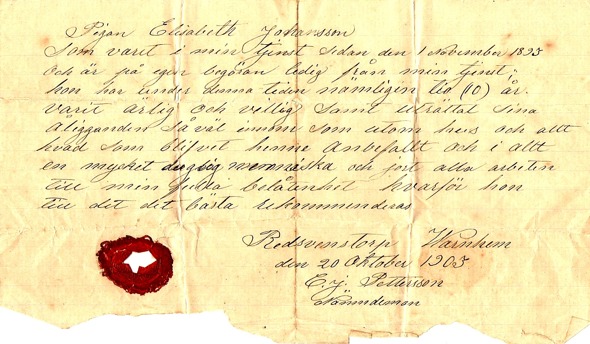 Pigan Elisabeth Johansson
Som varit i min tjenst sedan den 1 November 1895
och är på egen begäran ledig från min tjenst;
hon har under denna tiden nämligen tio (10) år
varit ärlig och villig samt uträttat sina
åligganden såväl innom som utom hus och allt
hvad som blifvit henne anbefallt och i allt
en mycket duglig menniska och jort alla arbeten
till min fulla belåtenhet hvarför hon
till det det bästa rekommenderas
Redsvenstorp Warnhem
den 20 Oktober 1905
C. J. Pettersson
Nämndeman